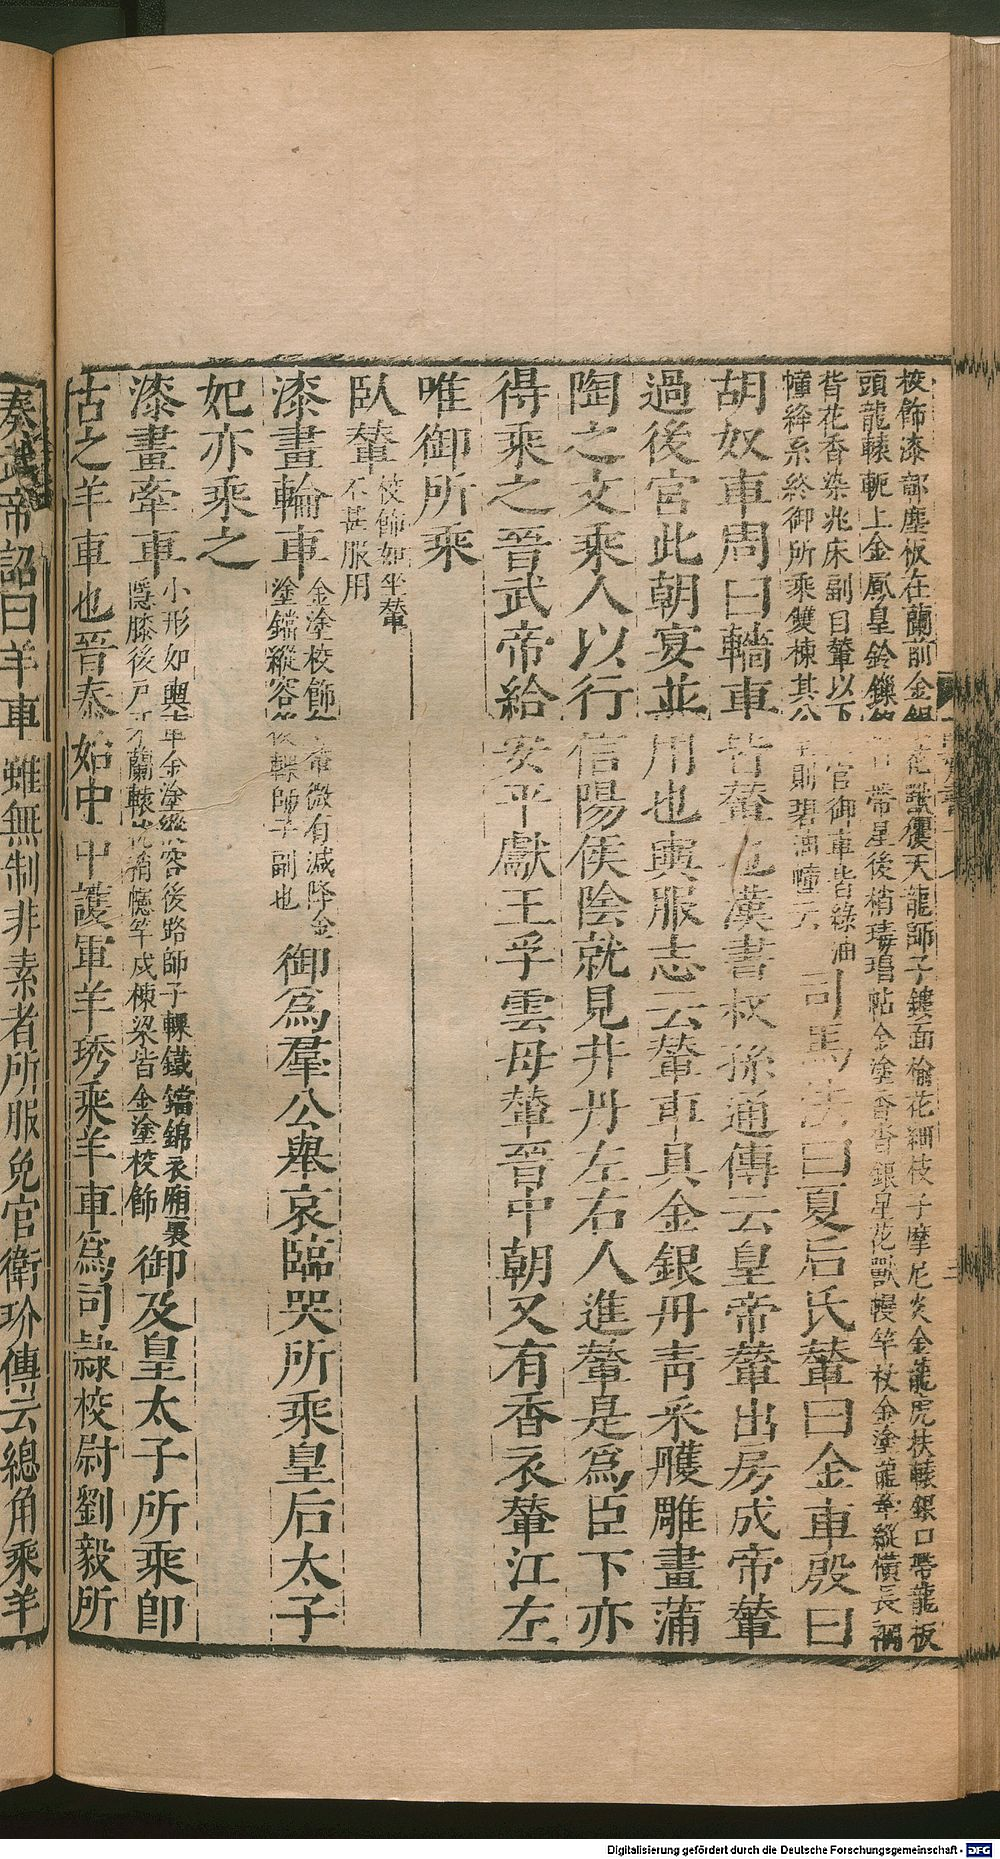 校飾漆鄣塵板在蘭前金銀花獸攫天龍師子鏤面榆花細枝子摩尼炎金龍虎扶轅銀口帶龍板
頭龍轅軛上金鳳皇鈴鏁銀口帶星後梢瑇瑁帖金塗香沓銀星花獸幔竿杖金塗龍牽縱橫長䙌
背花香染兆床副自輦以下二宮御車皆綠油
幢絳系絡御所乘雙棟其公主則碧油幢云
司馬法曰夏后氏輦曰金車殷曰
胡奴車周曰輜車皆輦也漢書叔孫通傳云皇帝輦出房成帝輦
過後宮此朝宴並用也輿服志云輦車具金銀丹青采雘雕畫蒲
陶之文乘人以行信陽侯陰就見井丹左右人進輦是爲臣下亦
得乘之晉武帝給安平獻王孚雲母輦晉中朝又有香衣輦江左
唯御所乘
臥輦校飾如坐輦
不甚服用
漆畫輪車金塗校飾如輦微有減降金
塗鐺縱容後輠師子副也
御爲羣公舉哀臨哭所乘皇后太子
妃亦乘之
漆畫牽車小形如輿車金塗縱容後路師子輠鐵鐺錦衣廂裏
隱膝後戶牙蘭轅枕梢幰竿戍棟梁皆金塗校飾
御及皇太子所乘即
古之羊車也晉泰始中中護軍羊琇乘羊車爲司隸校尉劉毅所
奏武帝詔曰羊車雖無制非素者所服免官衛玠傳云總角乘羊
Digitalisierung gefördert durch die Deutsche Forschungsgemeinschaft - DFG